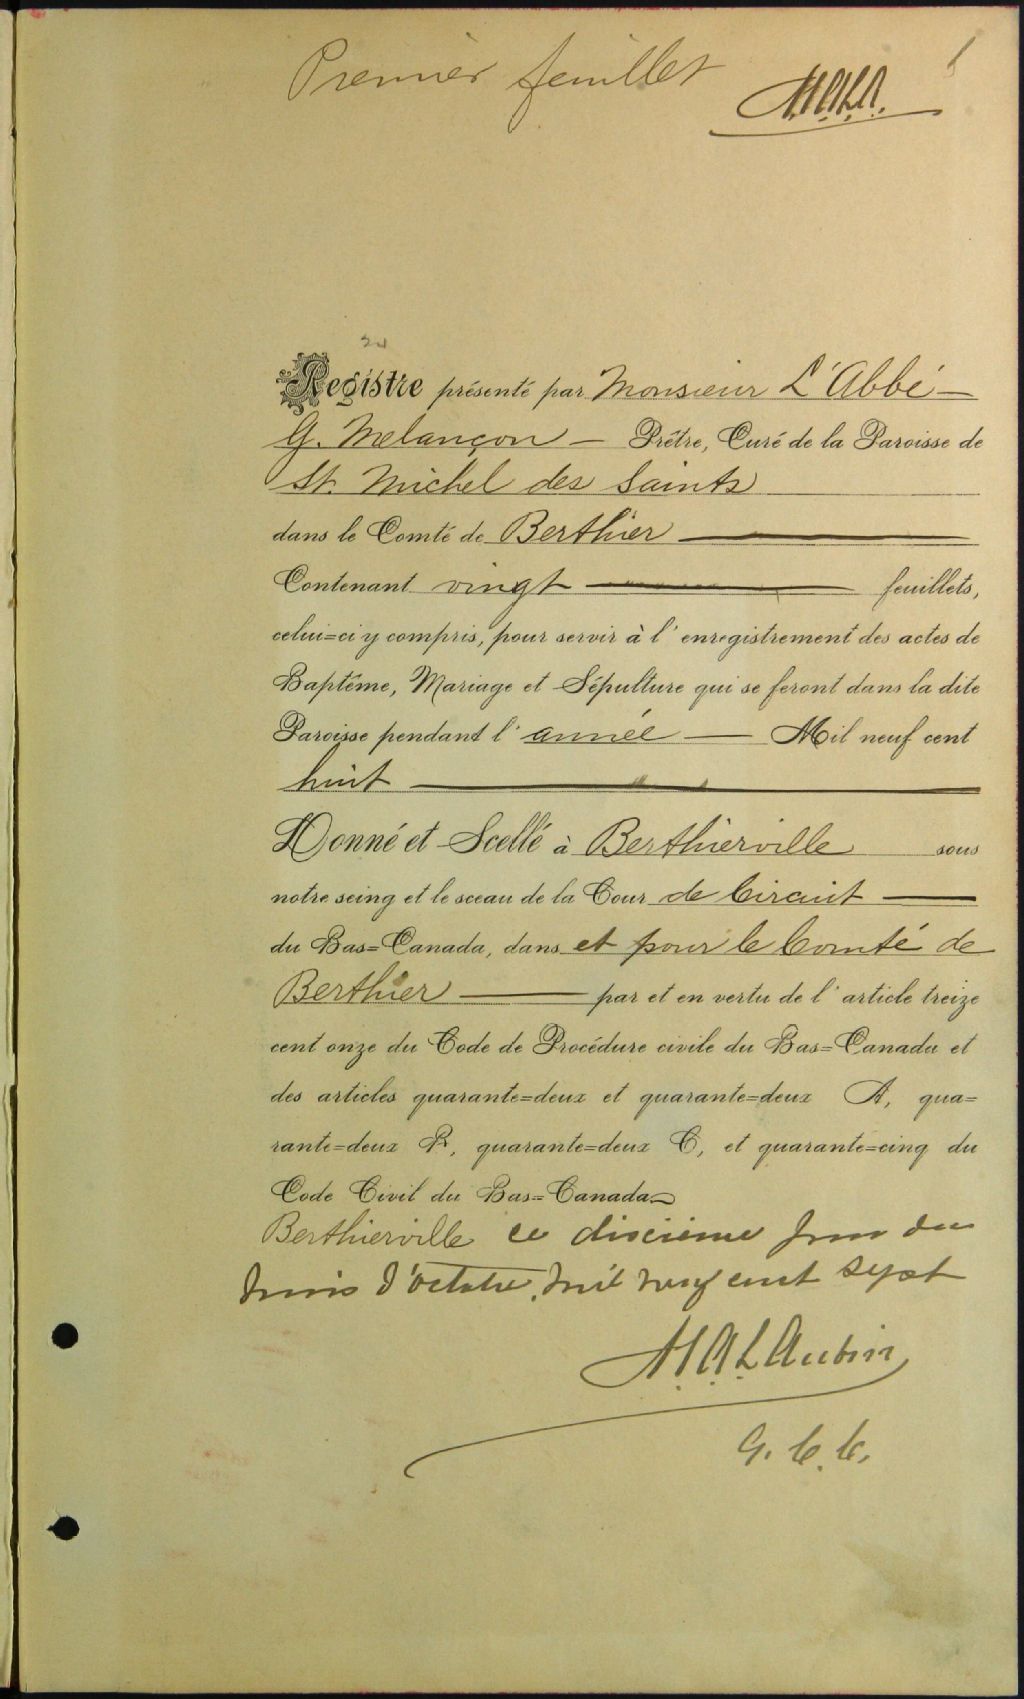 Premier feuillet
H.A.L.A.
1
Registre présenté par Monsieur L'Abbé —
G. Melançon — Prêtre, Curé de la Paroisse de
St. Michel des Saints
dans le Comté de Berthier —
Contenant vingt — feuillets,
celui=ci y compris, pour servir à l'enregistrement des actes de
Baptême, Mariage et Sépulture qui se feront dans la dite
Paroisse pendant l'année — Mil neuf cent
huit —
Donné et Scellé à Berthierville sous
notre seing et le sceau de la Cour de Circuit —
du Bas=Canada, dans et pour le Comté de
Berthier — par et en vertu de l'article treize
cent onze du Code de Procédure civile du Bas=Canada et
des articles quarante=deux et quarante=deux A, qua=
rante=deux B, quarante=deux C, et quarante=cinq du
Code Civil du Bas=Canada
Berthierville ce dixieme jour du
mois d'octobre, mil neuf cent sept
H.A.L Aubin
G. C. C.